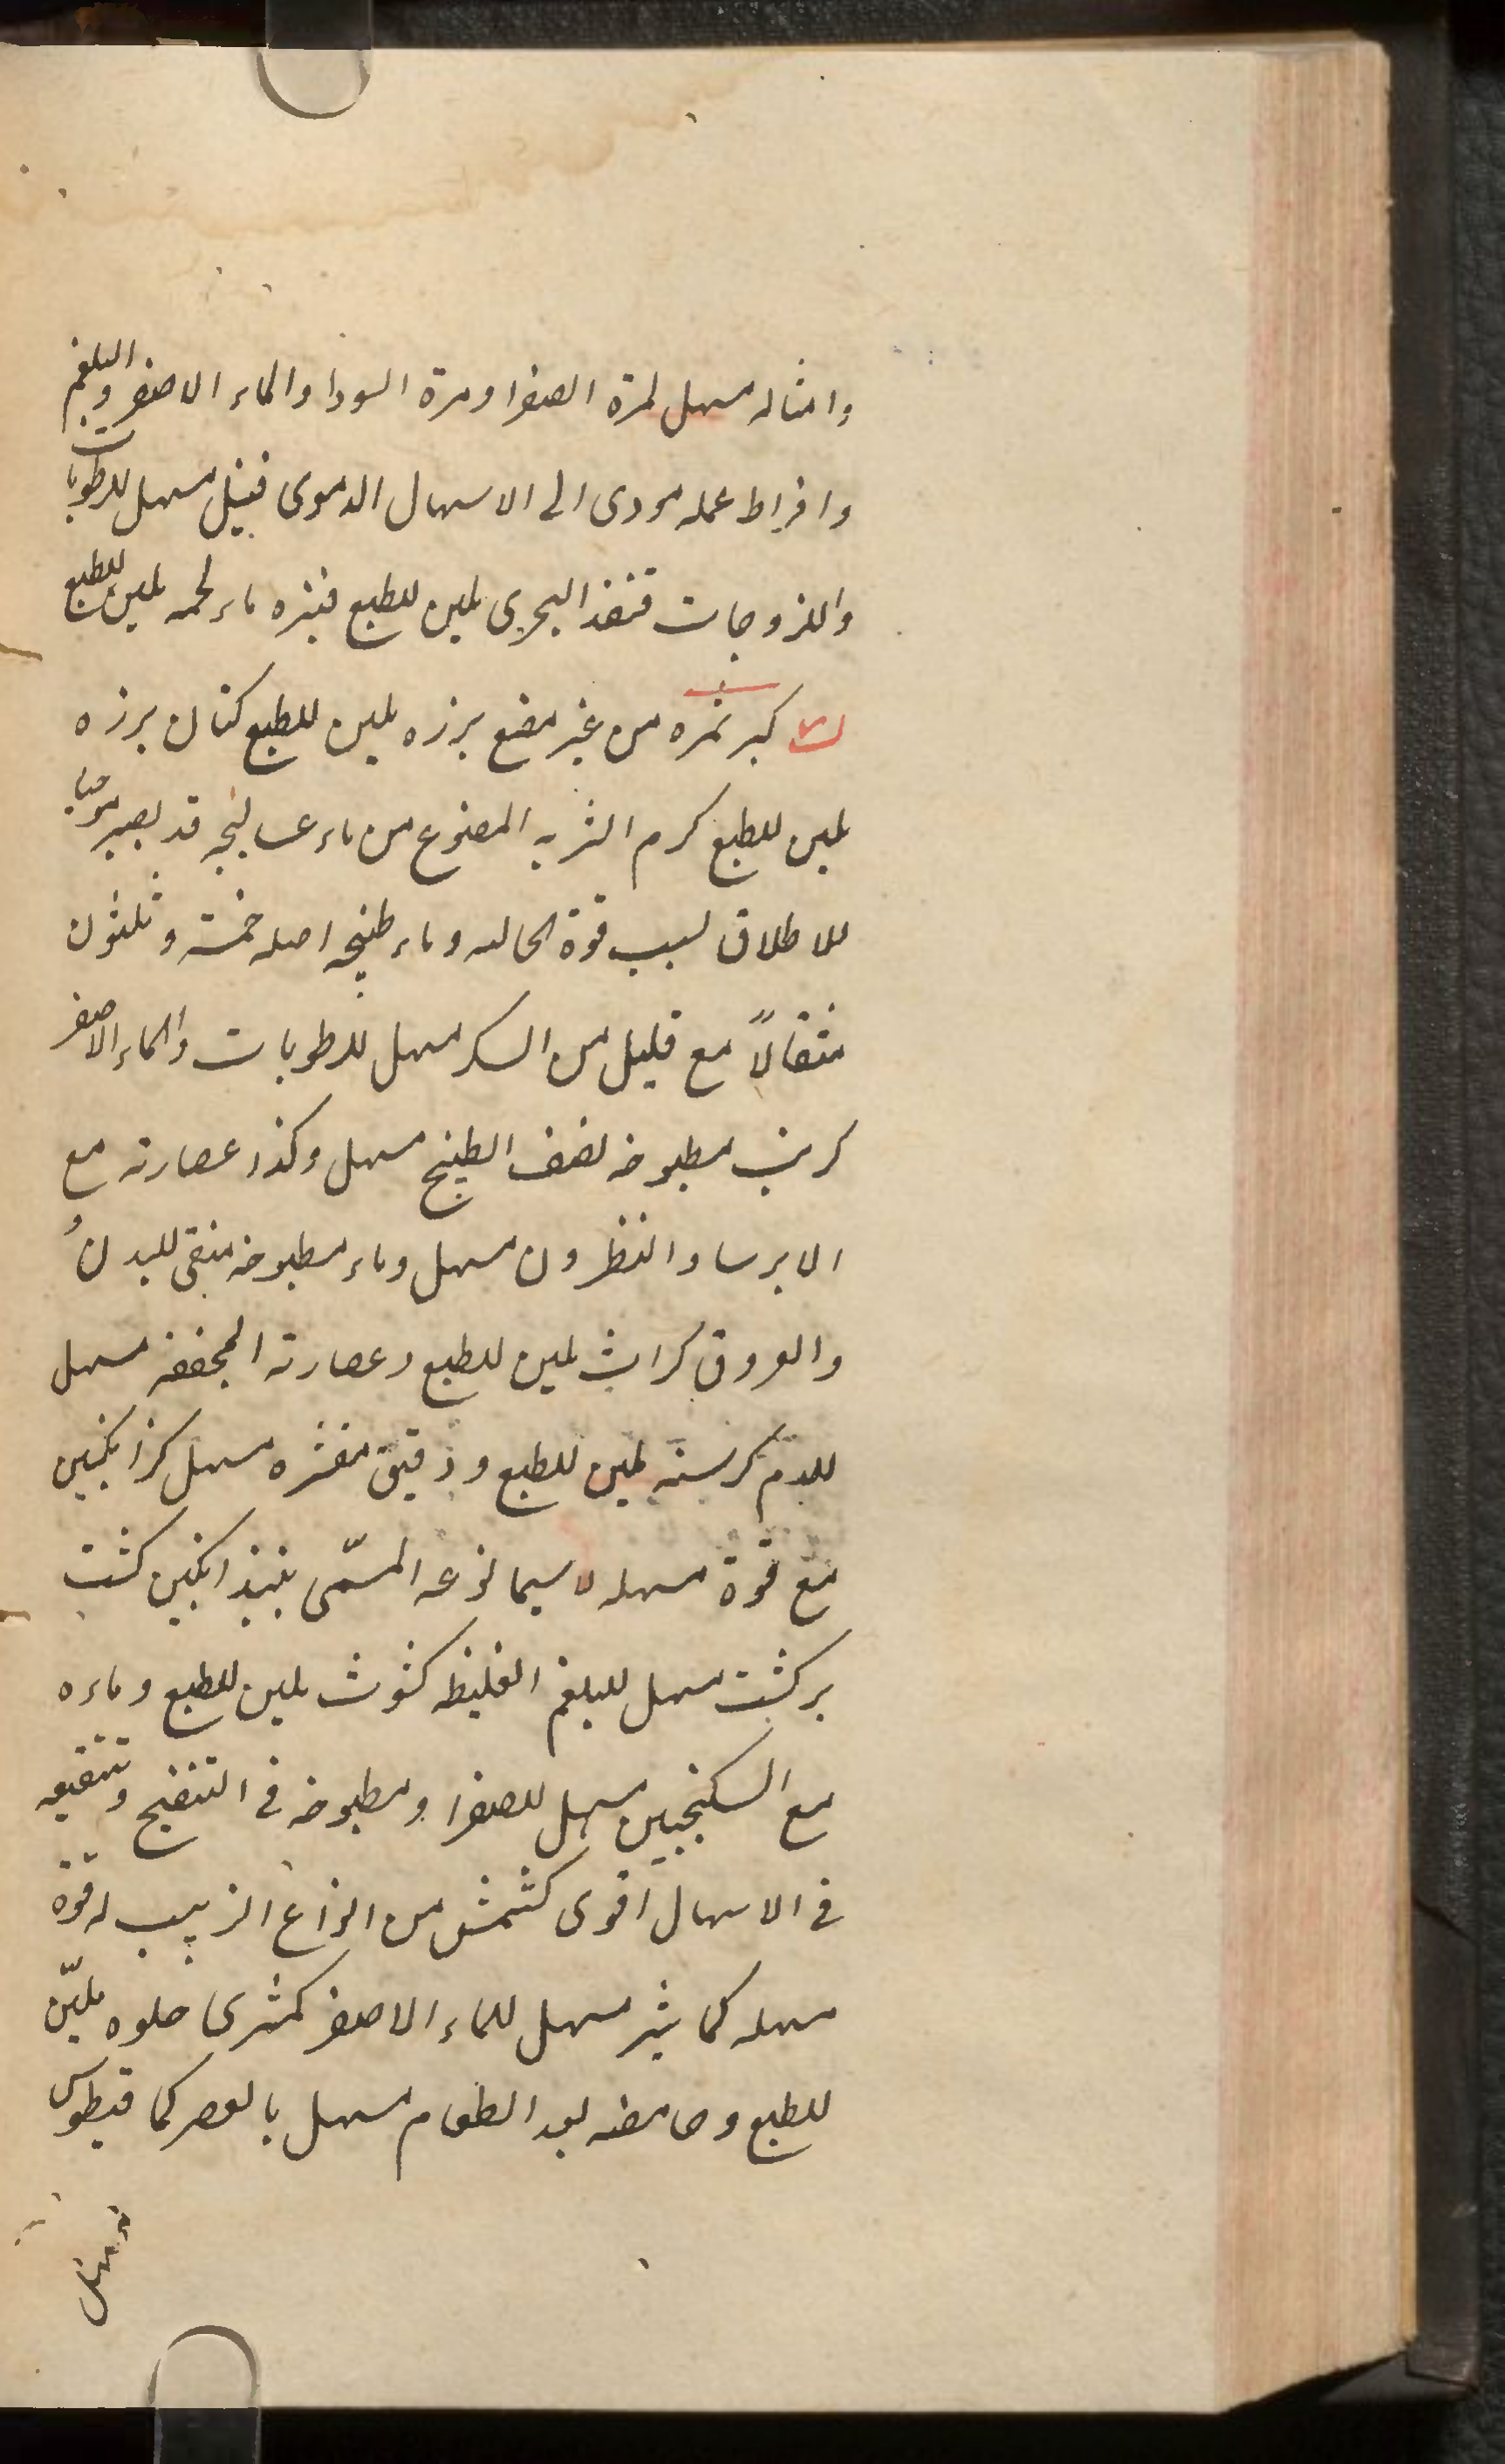 وامثاله مسهل لمرة الصفرا ومرة السودا والماء الاصفر والبلغم
وافراط عمله مودى الى الاسهال الدموى قنبيل مسهل للرطوبات
واللزوجات قنفذ البحرى ملين للطبع قنبره ماء لحمه ملين للطبع
كبر ثمره من غير مضغ بزره ملين للطبع كتان بزره
ملين للطبع كرم الشربه المصنوع من ماء عساليجه قد يصير موجبا
للاطلاق لسبب قوة الحاله وماء طبيخه اصله خمسة وثلثون
مثقالاً مع قليل من السكر مسهل للرطوبات والماء الاصفر
كرنب مطبوخه نصف الطبيخ مسهل وكذا عصارته مع
الايرسا والنطرون مسهل وماء مطبوخه منقى للبدن
والعروق كراث ملين للطبع وعصارته المجففه مسهل
للدم كرسنه ملين للطبع ودقيق مقشره مسهل كزانكبين
مع قوة مسهله لا سيما نوعه المسمّى بنبذانكبين كشت
بركشت مسهل للبلغم الغليظ كشوث ملين للطبع وماءه
مع السكنجبين مسهل للصفرا ومطبوخه فى التنقيح ونقيعه
فى الاسهال اقوى كشمش من انواع الزبيب له قوة
مسهله كماشير مسهل للماء الاصفر كمثرى حلوه ملیّن
للطبع وحامضه بعد الطعام مسهل بالعصر كمافيطوس
مسهل